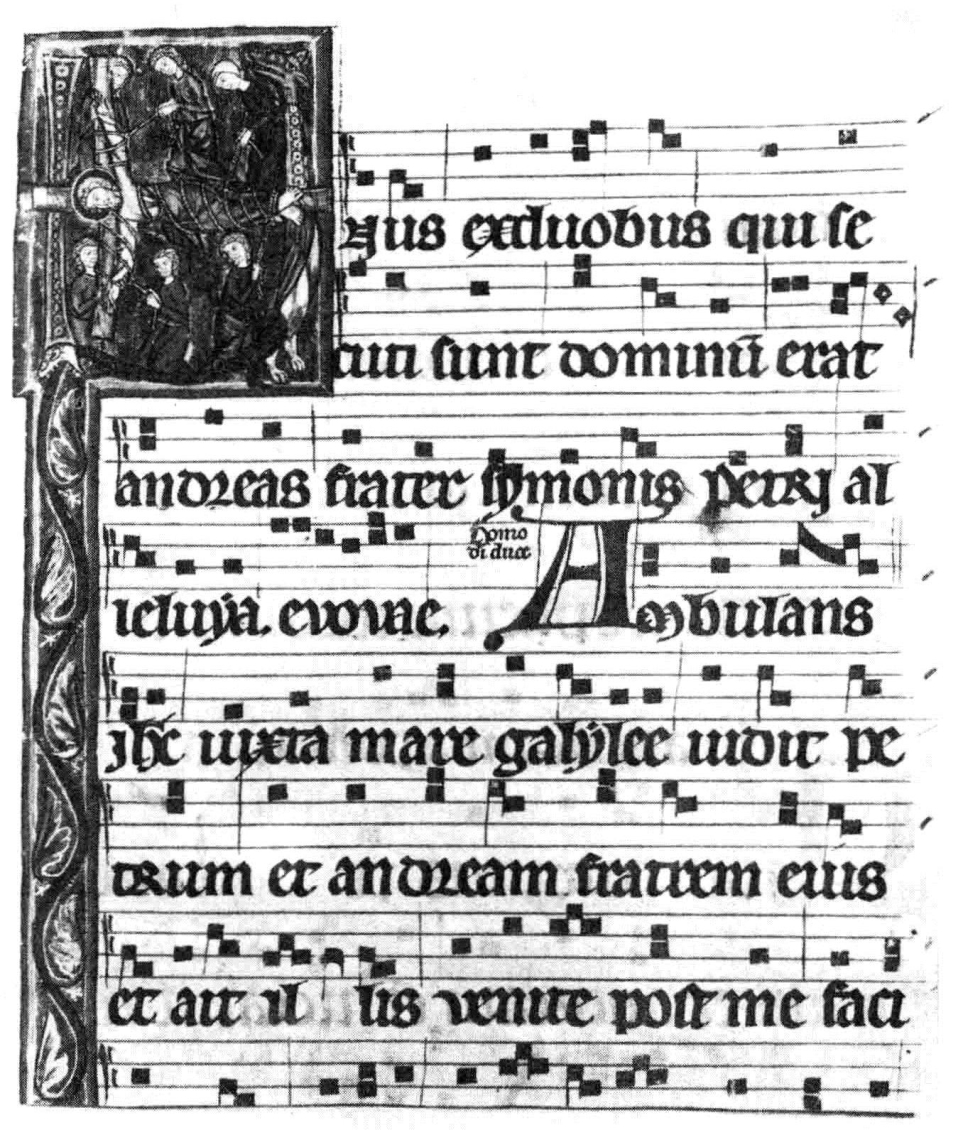 UNus ex duobus qui se
cuti sunt dominū erat
andreas frater symonis petri al
leluẏa. evovae. Ambulans
ihc̄ iuxta mare galẏlee uidit pe
trum et andream fratrem eius
et ait il lis venite post me faci